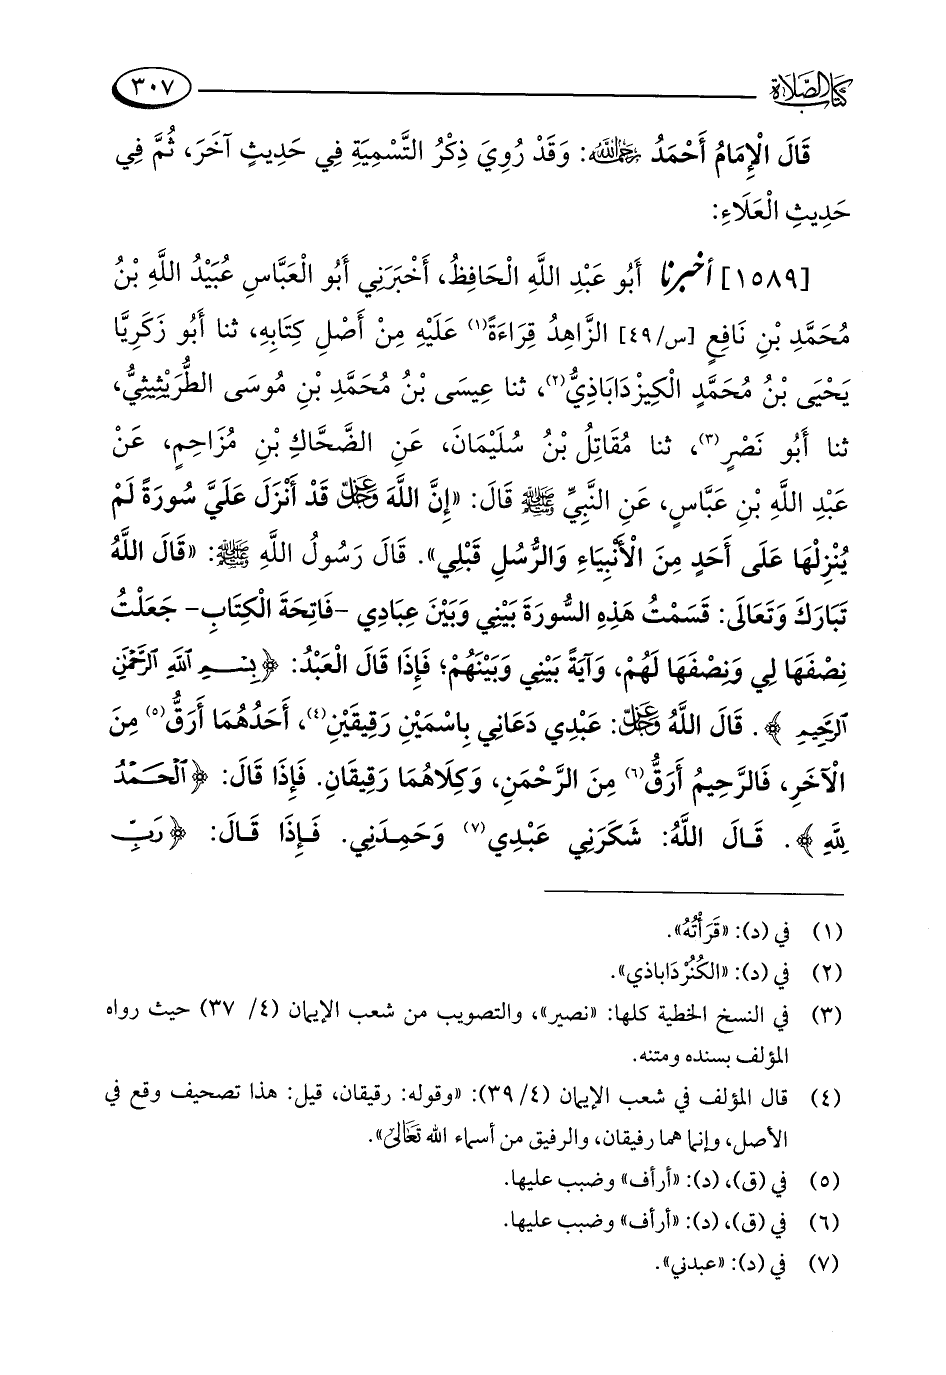 كتاب الصلاة ٣٠٧
قَالَ الْإِمَامُ أَحْمَدُ رَحِمَهُ اللَّهُ: وَقَدْ رُوِيَ ذِكْرُ التَّسْمِيَةِ فِي حَدِيثٍ آخَرَ، ثُمَّ فِي
حَدِيثِ الْعَلَاءِ:
[١٥٨٩] أخبرنا أَبُو عَبْدِ اللَّهِ الْحَافِظُ، أَخْبَرَنِي أَبُو الْعَبَّاسِ عُبَيْدُ اللَّهِ بْنُ
مُحَمَّدِ بْنِ نَافِعٍ [س/٤٩] الزَّاهِدُ قِرَاءَةً(١) عَلَيْهِ مِنْ أَصْلِ كِتَابِهِ، ثنا أَبُو زَكَرِيَّا
يَحْيَى بْنُ مُحَمَّدٍ الْكِيزْدَابَاذِيُّ(٢)، ثنا عِيسَى بْنُ مُحَمَّدِ بْنِ مُوسَى الطُّرَيْثِيثِيُّ،
ثنا أَبُو نَصْرٍ(٣)، ثنا مُقَاتِلُ بْنُ سُلَيْمَانَ، عَنِ الضَّحَّاكِ بْنِ مُزَاحِمٍ، عَنْ
عَبْدِ اللَّهِ بْنِ عَبَّاسٍ، عَنِ النَّبِيِّ ﷺ قَالَ: «إِنَّ اللَّهَ عَزَّ وَجَلَّ قَدْ أَنْزَلَ عَلَيَّ سُورَةً لَمْ
يُنْزِلْهَا عَلَى أَحَدٍ مِنَ الْأَنْبِيَاءِ وَالرُّسُلِ قَبْلِي». قَالَ رَسُولُ اللَّهِ ﷺ: «قَالَ اللَّهُ
تَبَارَكَ وَتَعَالَى: قَسَمْتُ هَذِهِ السُّورَةَ بَيْنِي وَبَيْنَ عِبَادِي -فَاتِحَةَ الْكِتَابِ- جَعَلْتُ
نِصْفَهَا لِي وَنِصْفَهَا لَهُمْ، وَآيَةً بَيْنِي وَبَيْنَهُمْ؛ فَإِذَا قَالَ الْعَبْدُ: ﴿بِسْمِ ٱللَّهِ ٱلرَّحْمَٰنِ
ٱلرَّحِيمِ﴾. قَالَ اللَّهُ عَزَّ وَجَلَّ: عَبْدِي دَعَانِي بِاسْمَيْنِ رَقِيقَيْنِ(٤)، أَحَدُهُمَا أَرَقُّ(٥) مِنَ
الْآخَرِ، فَالرَّحِيمُ أَرَقُّ(٦) مِنَ الرَّحْمَنِ، وَكِلَاهُمَا رَقِيقَانِ. فَإِذَا قَالَ: ﴿ٱلْحَمْدُ
لِلَّهِ﴾. قَالَ اللَّهُ: شَكَرَنِي عَبْدِي(٧) وَحَمِدَنِي. فَإِذَا قَالَ: ﴿رَبِّ
(١) في (د): «قَرَأْتُهُ».
(٢) في (د): «الكُنُزْدَاباذي».
(٣) في النسخ الخطية كلها: «نصير»، والتصويب من شعب الإيمان (٤/ ٣٧) حيث رواه
المؤلف بسنده ومتنه.
(٤) قال المؤلف في شعب الإيمان (٤/ ٣٩): «وقوله: رقيقان، قيل: هذا تصحيف وقع في
الأصل، وإنما هما رفيقان، والرفيق من أسماء الله تعالى».
(٥) في (ق)، (د): «أرأف» وضبب عليها.
(٦) في (ق)، (د): «أرأف» وضبب عليها.
(٧) في (د): «عبدني».